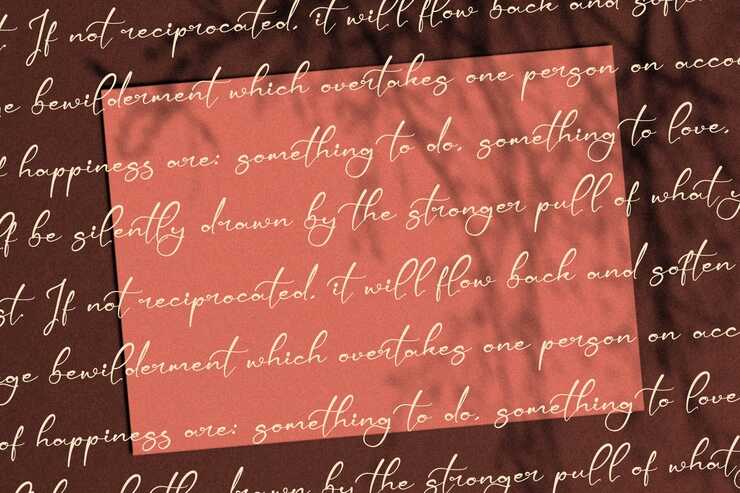 t. If not reciprocated, it will flow back and soften
ge bewilderment which overtakes one person on acco
f happiness are: something to do, something to love,
lf be silently drawn by the stronger pull of what y
st. If not reciprocated, it will flow back and soften
ge bewilderment which overtakes one person on acc
of happiness are: something to do, something to love
drawn by the stronger pull of what